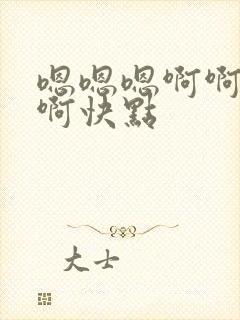 嗯嗯嗯啊啊
啊快點
大士